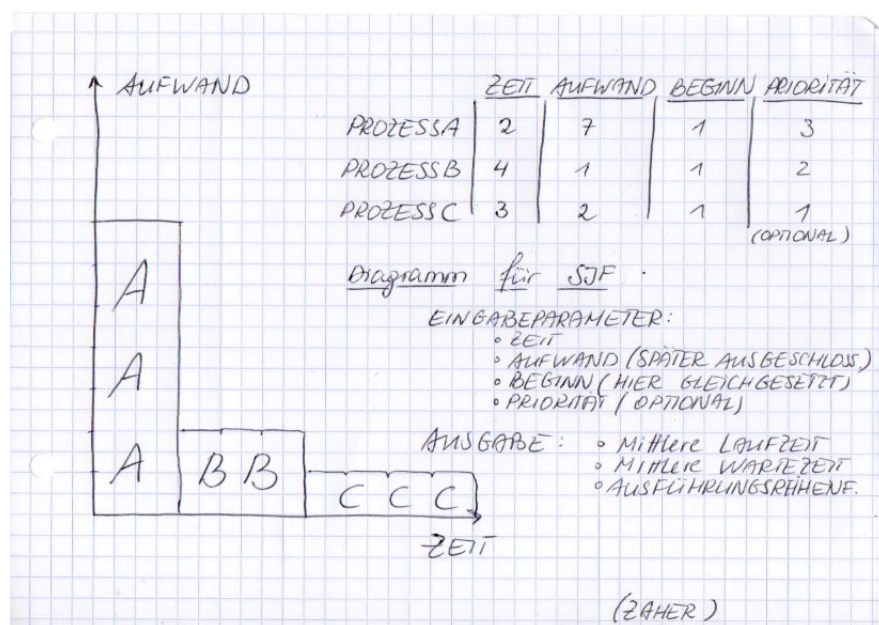 AUFWAND
ZEIT AUFWAND BEGINN PRIORITÄT
PROZESS A 2 7 1 3
PROZESS B 4 1 1 2
PROZESS C 3 2 1 1
(OPTIONAL)
Diagramm für SJF
EINGABEPARAMETER:
• ZEIT
• AUFWAND (SPÄTER AUSGESCHLOSS)
• BEGINN (HIER GLEICHGESETZT)
• PRIORITÄT (OPTIONAL)
AUSGABE: • Mittlere LAUFZEIT
• Mittlere WARTEZEIT
• AUSFÜHRUNGSREIHENF.
A
A
A B B
C C C
ZEIT
(ZAHER)